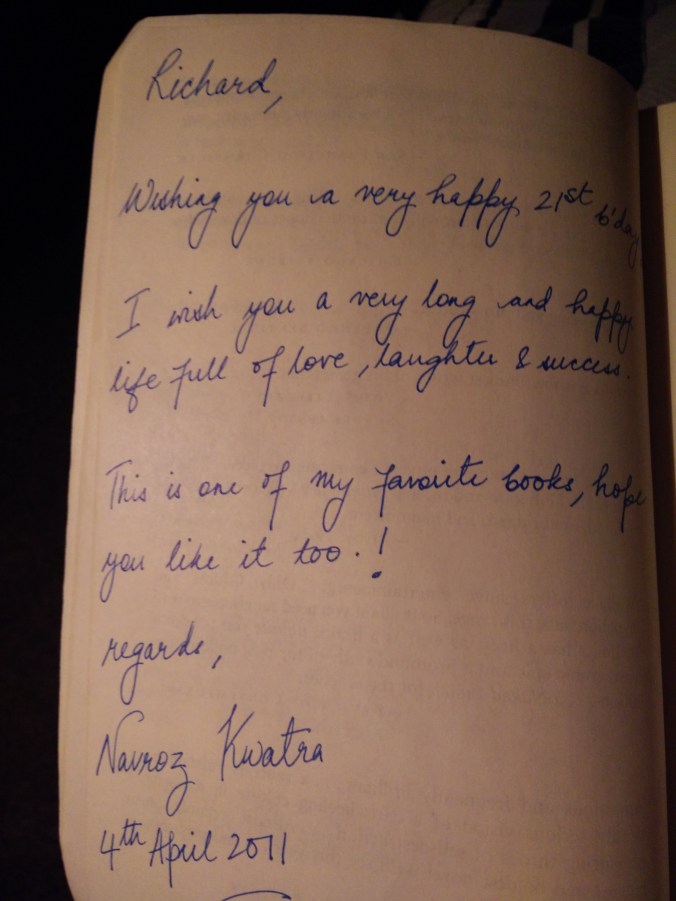 Richard,
Wishing you a very happy 21st b'day
I wish you a very long and happy
life full of love, laughter & success.
This is one of my favorite books, hope
you like it too.!
regards,
Navroz Kwatra
4th April 2011